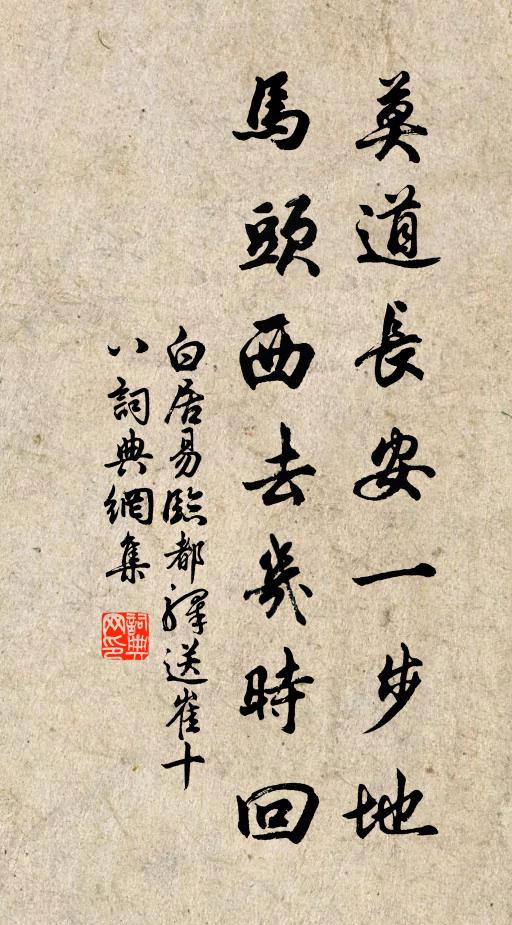 莫道長安一步地
馬頭西去幾時回
白居易臨都驛送崔十
八詞典網集
詞典网印